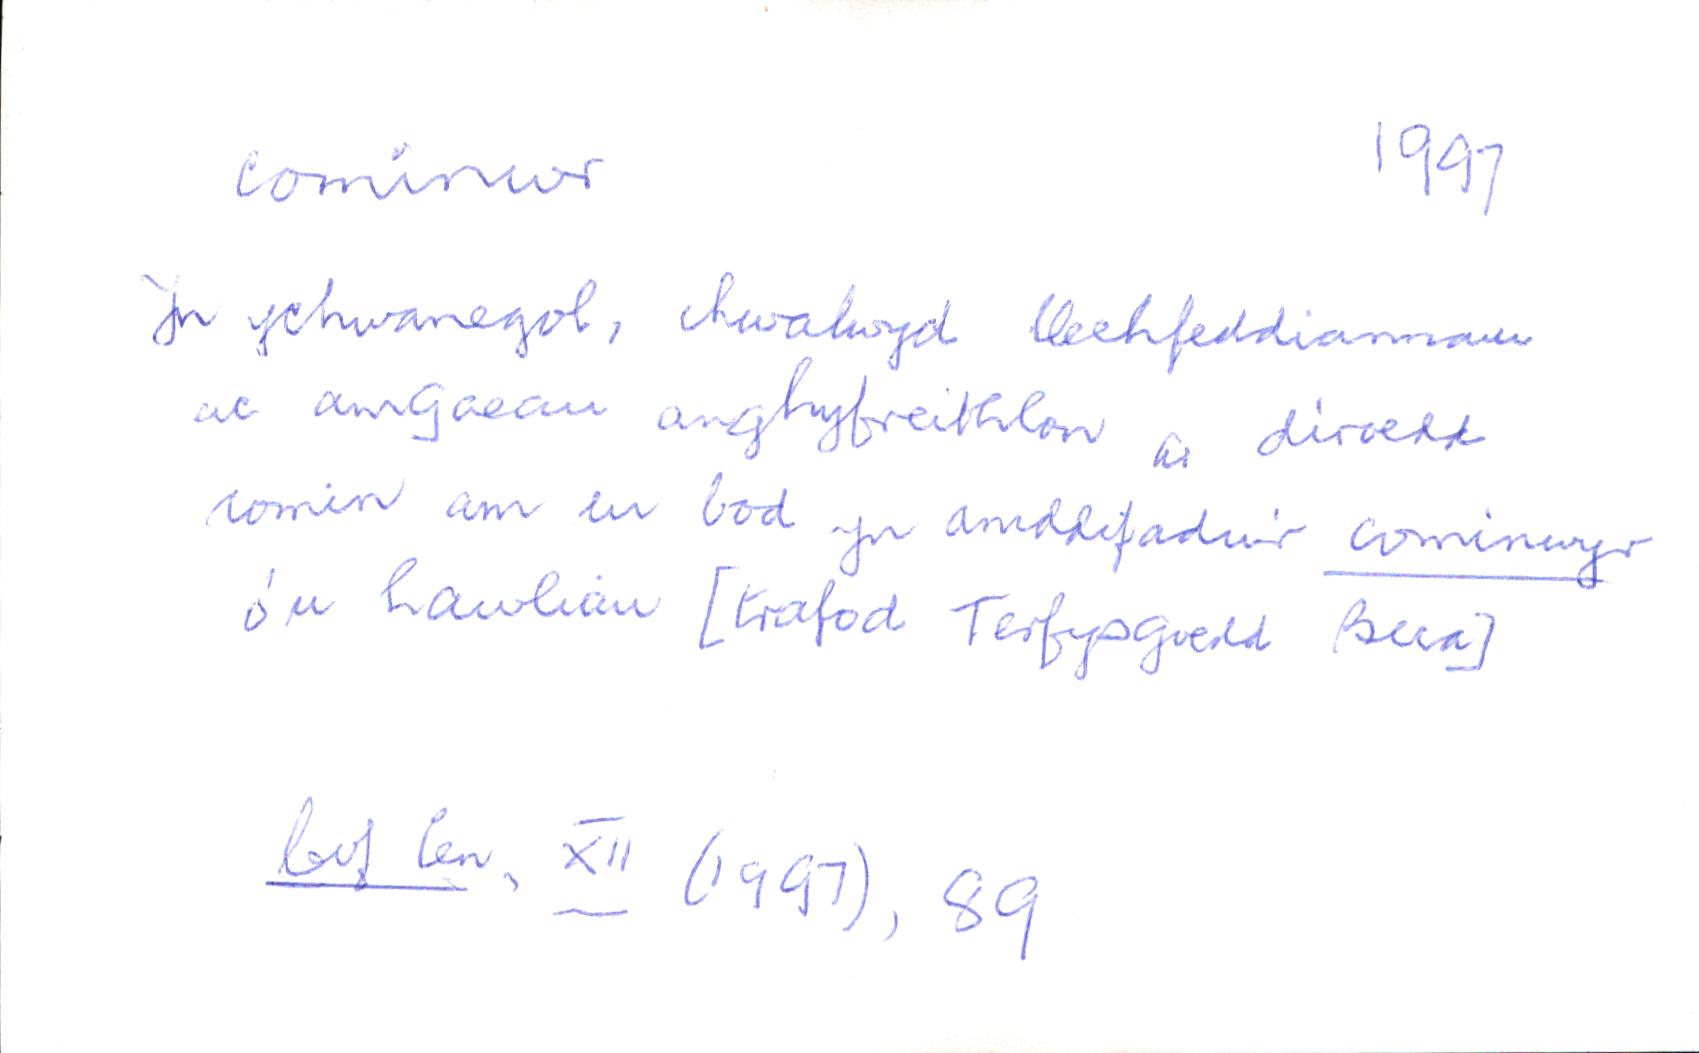 cominwr 1997
Yn ychwanegol, chwalwyd llechfeddiannau
ac amgaeau anghyfreithlon ar diroedd
comin am eu bod yn amddifadu'r cominwyr
o'u hawliau [trafod Terfysgoedd Beca]
Cof Cen, XII (1997), 89